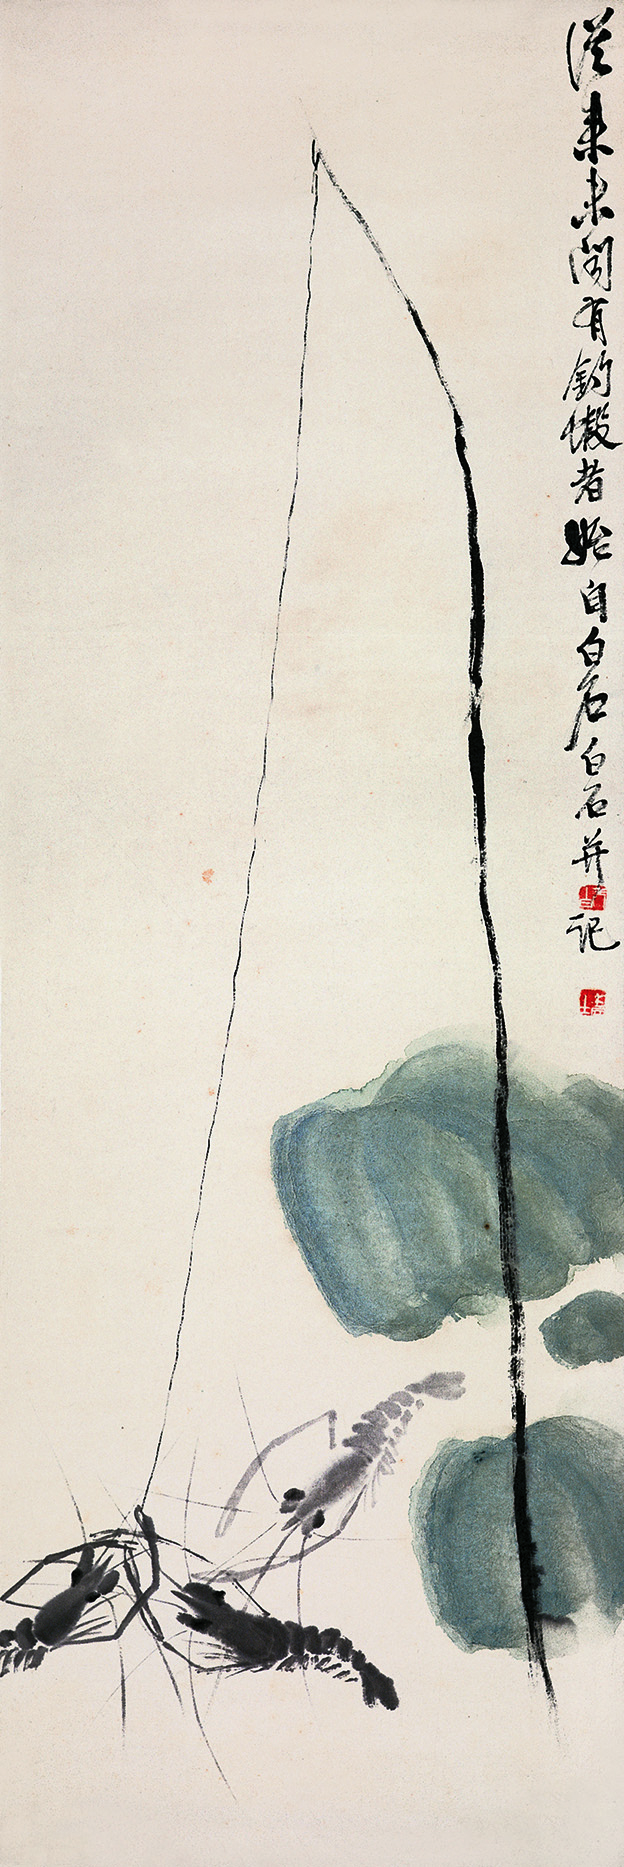 從來未聞有釣蝦者始自白石白石并記